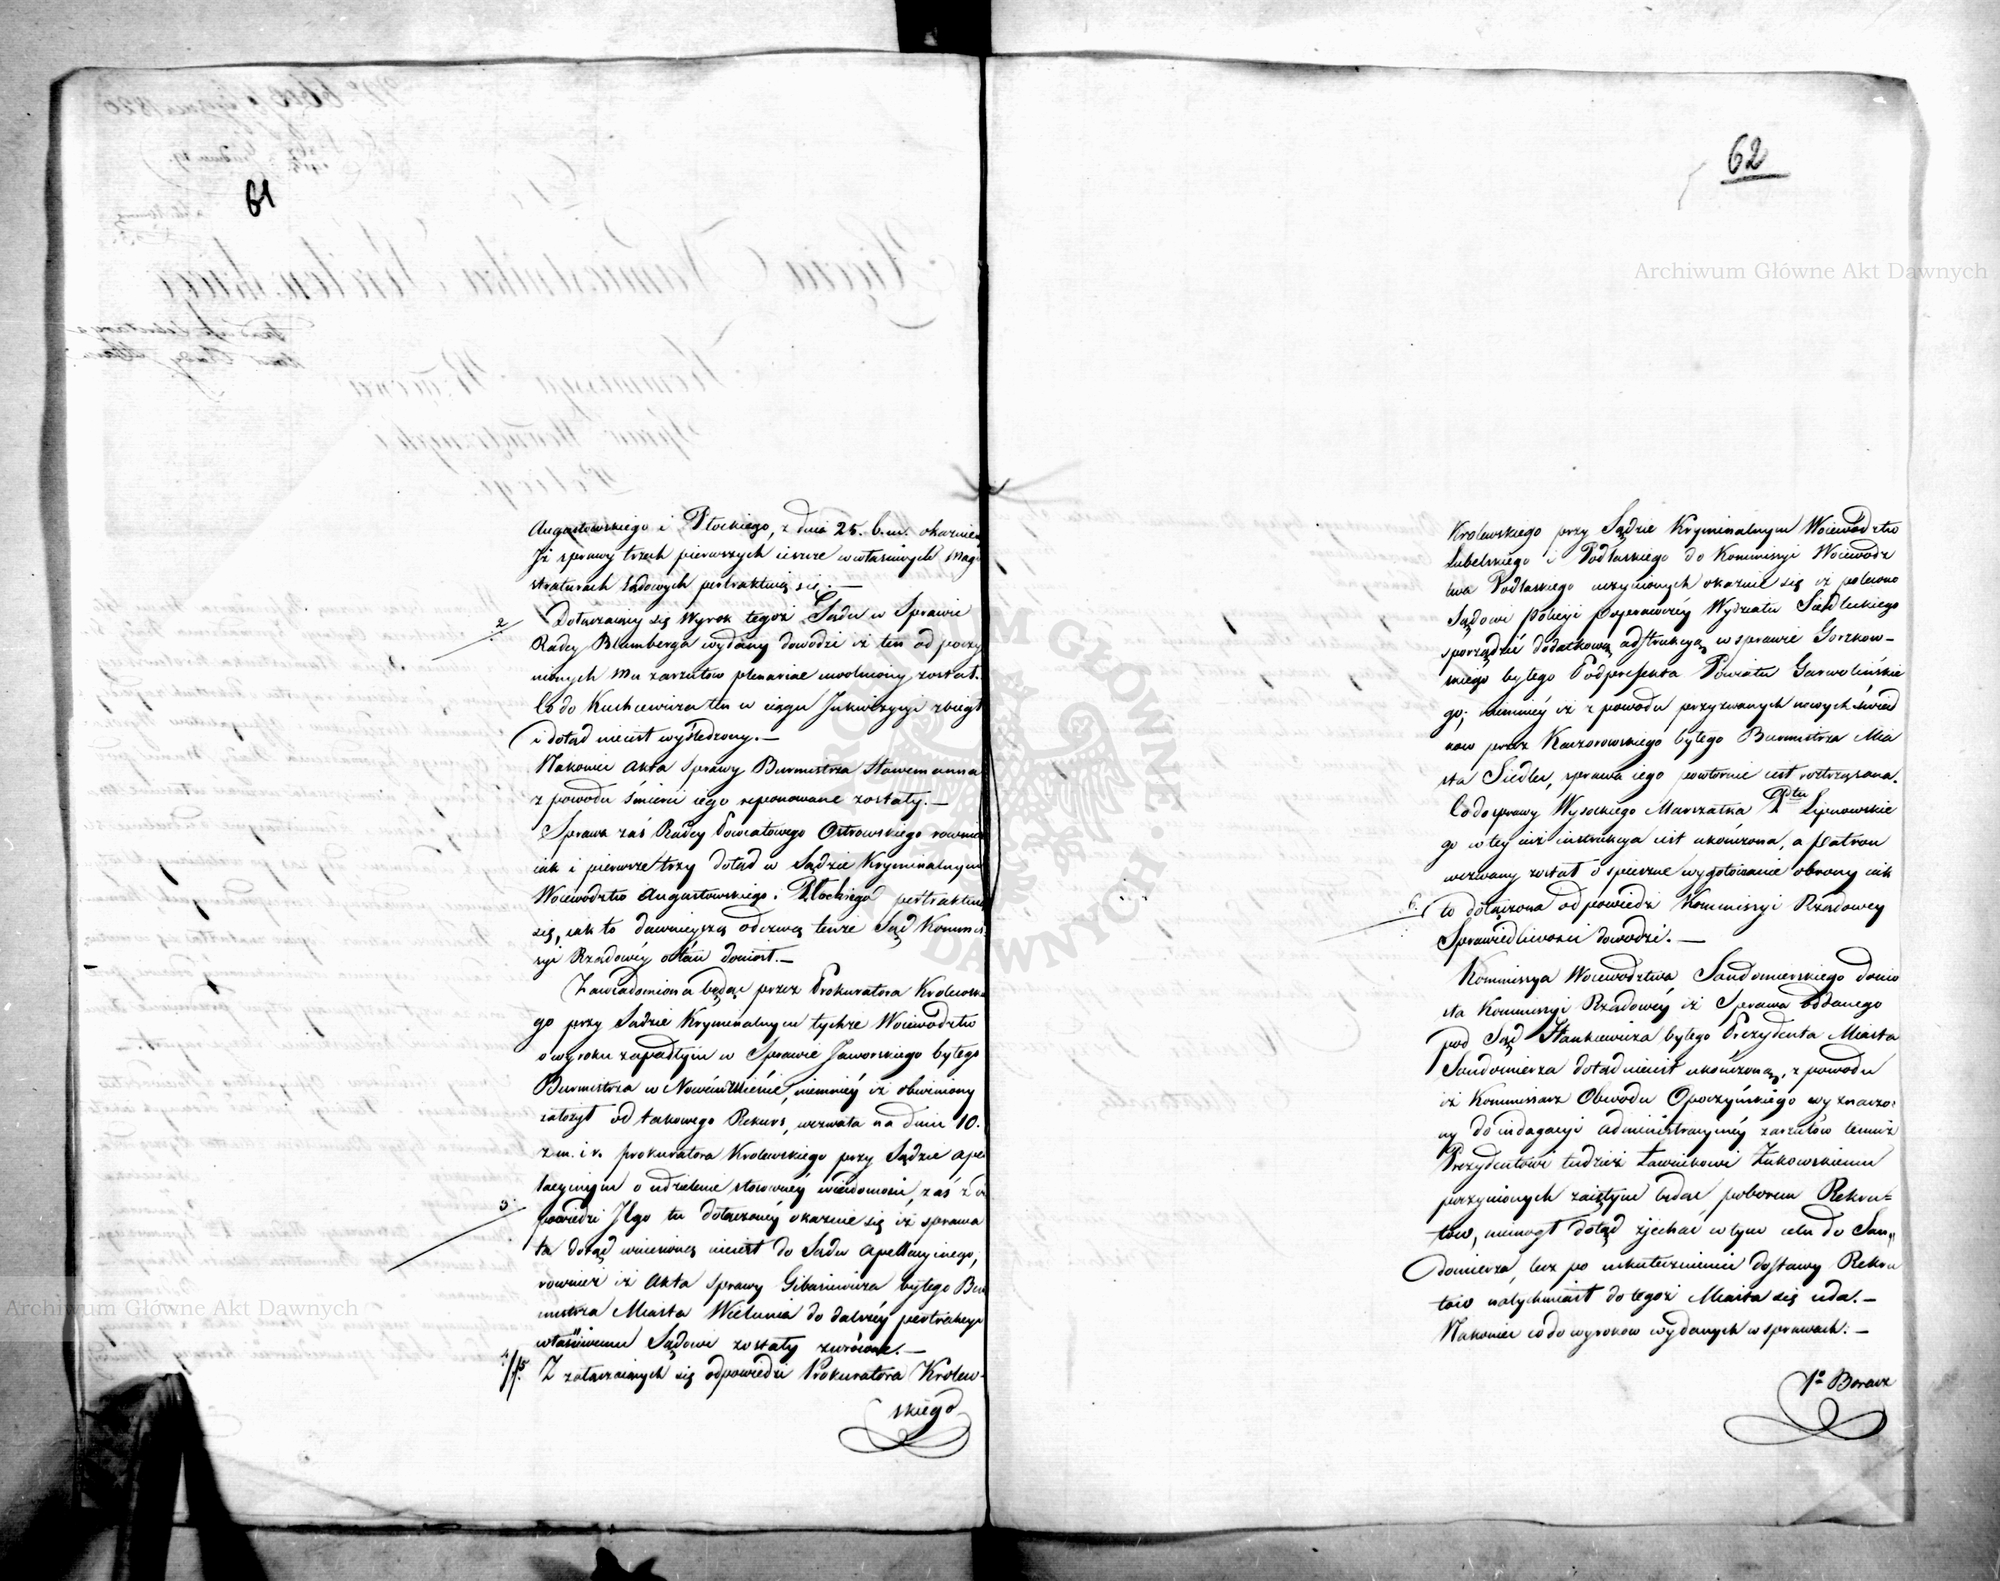 61
Augustowskiego i Płockiego, z dnia 25. b.m. okazuie
Iż sprawy trzech pierwszych ieszcze w właściwych Mag
straturach Sądowych pertraktuią się. —
2. Dołączaiący się Wyrok tegoż Sądu w Sprawie
Radcy Blumberga wydany dowodzi iż ten od poczy
nionych Mu zarzutów plenariae uwolniony został.
Co do Kuchcewicza ten w ciągu Inkwizycyi zbiegł
i dotąd nieiest wyśledzony. —
Nakoniec Akta Sprawy Burmistrza
z powodu śmierci iego reponowane zostały. —
Sprawa zaś Radcy Powiatowego Ostrowskiego rownie
iak i pierwsze trzy dotąd w Sądzie Kryminalnym
Woiewodztw Augustowskiego i Płockiego pertraktuie
się, iak to dawnieyszą odezwą tenże Sąd Kommis
syi Rządowéy doniosł. —
Zawiadomiona będąc przez Prokuratora Krolewsk
go przy Sądzie Kryminalnym tychże Woiewodztw
o wyroku zapadłym w Sprawie Jaworskiego byłego
Burmistrza w Nowém Mieście, niemniéy iż obwiniony
założył od takowego Rekurs, wezwała na dniu 10.
z.m. i r. prokuratora Krolewskiego przy Sądzie Ape
lacyinym o udzielenie stosownéy wiadomości, zaś z od
3. powiedzi Jego tu dołączonéy okazuie się iż sprawa
ta dotąd wniesioną nieiest do Sądu Apellacyinego,
rownież iż Akta sprawy Gibasiewicza byłego Bur
mistrza Miasta Wielunia do dalszéy pertraktacyi
właściwemu Sądowi zostały zwrócone. —
4./5. Z załączaiących się odpowiedzi Prokuratora Krolew-
skiego
62
Krolewskiego przy Sądzie Kryminalnym Woiewodztw
Lubelskiego i Podlaskiego do Kommissyi Woiewodz
twa Podlaskiego uczynionych okazuie się iż polecono
Sądowi Policyi Poprawczey Wydziału Siedleckiego
sporządzić dodatkową adstrukcyą w sprawie Gorzkow-
skiego byłego Podprefekta Powiatu Garwolińskie
go; niemniéy iż z powodu przyzwanych nowych świad
kow przez Kaczorowskiego byłego Burmistrza Mia
sta Siedlec, sprawa iego powtornie iest roztrząsana.
Co do sprawy Wysockiego Marszałka Pttu Lipnowskie
go w tey iuż instrukcya iest ukończona, a Patron
wezwany został o spieszne wygotowanie obrony iak
6. to dołączona odpowiedź Kommissyi Rządowey
Sprawiedliwości dowodzi. —
Kommissya Woiewodztwa Sandomierskiego donio
sła Kommissyi Rządowéy iż Sprawa oddanego
pod Sąd Stankiewicza byłego Prezydenta Miasta
Sandomierza dotąd nieiest ukończoną, z powodu
iż Kommissarz Obwodu Opoczyńskiego wyznaczo:
ny do indagacyi administracyinéy zarzutów temuż
Prezydentowi tudzież Ławnikowi Żukowskiemu
poczynionych zaiętym będąc poborem Rekru=
tów, niemogł dotąd zjechać w tym celu do San„
domierza, lecz po uskutecznieniu dostawy Rekru
tów natychmiast do tegoż Miasta się uda. —
Nakoniec co do wyrokow wydanych w sprawach: —
1º Boracz
Archiwum Główne Akt Dawnych
Archiwum Główne Akt Dawnych
ARCHIWUM GŁÓWNE AKT DAWNYCH